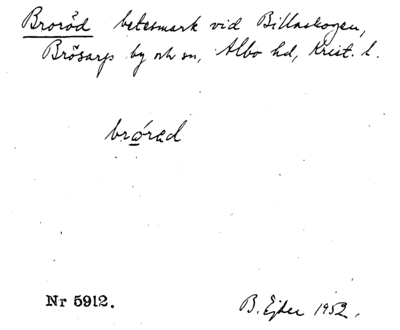 Broröd betesmark vid Billaskogen,
Brösarps by och sn, Albo hd, Krist. l.
brórad
Nr 5912.
B. Ejder 1952.